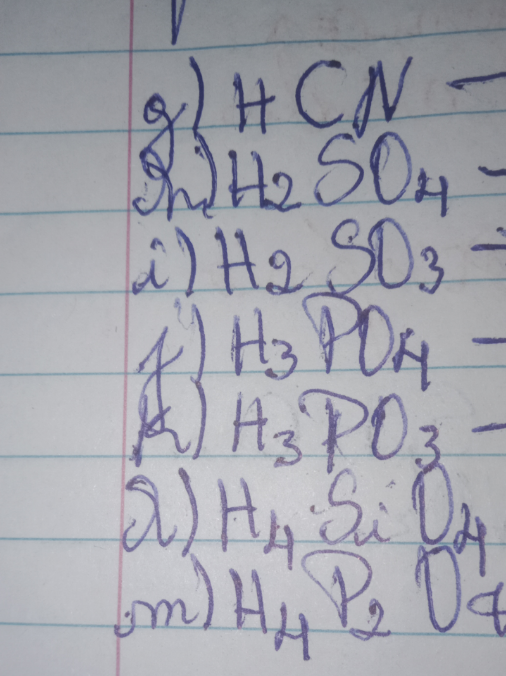 g) HCN -
h) H2SO4 -
i) H2SO3 -
j) H3PO4 -
k) H3PO3 -
l) H4SiO4
m) H4P2O